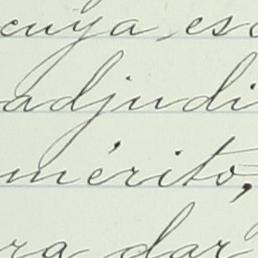 cuya esc
adjudi
mérito,
ra dar